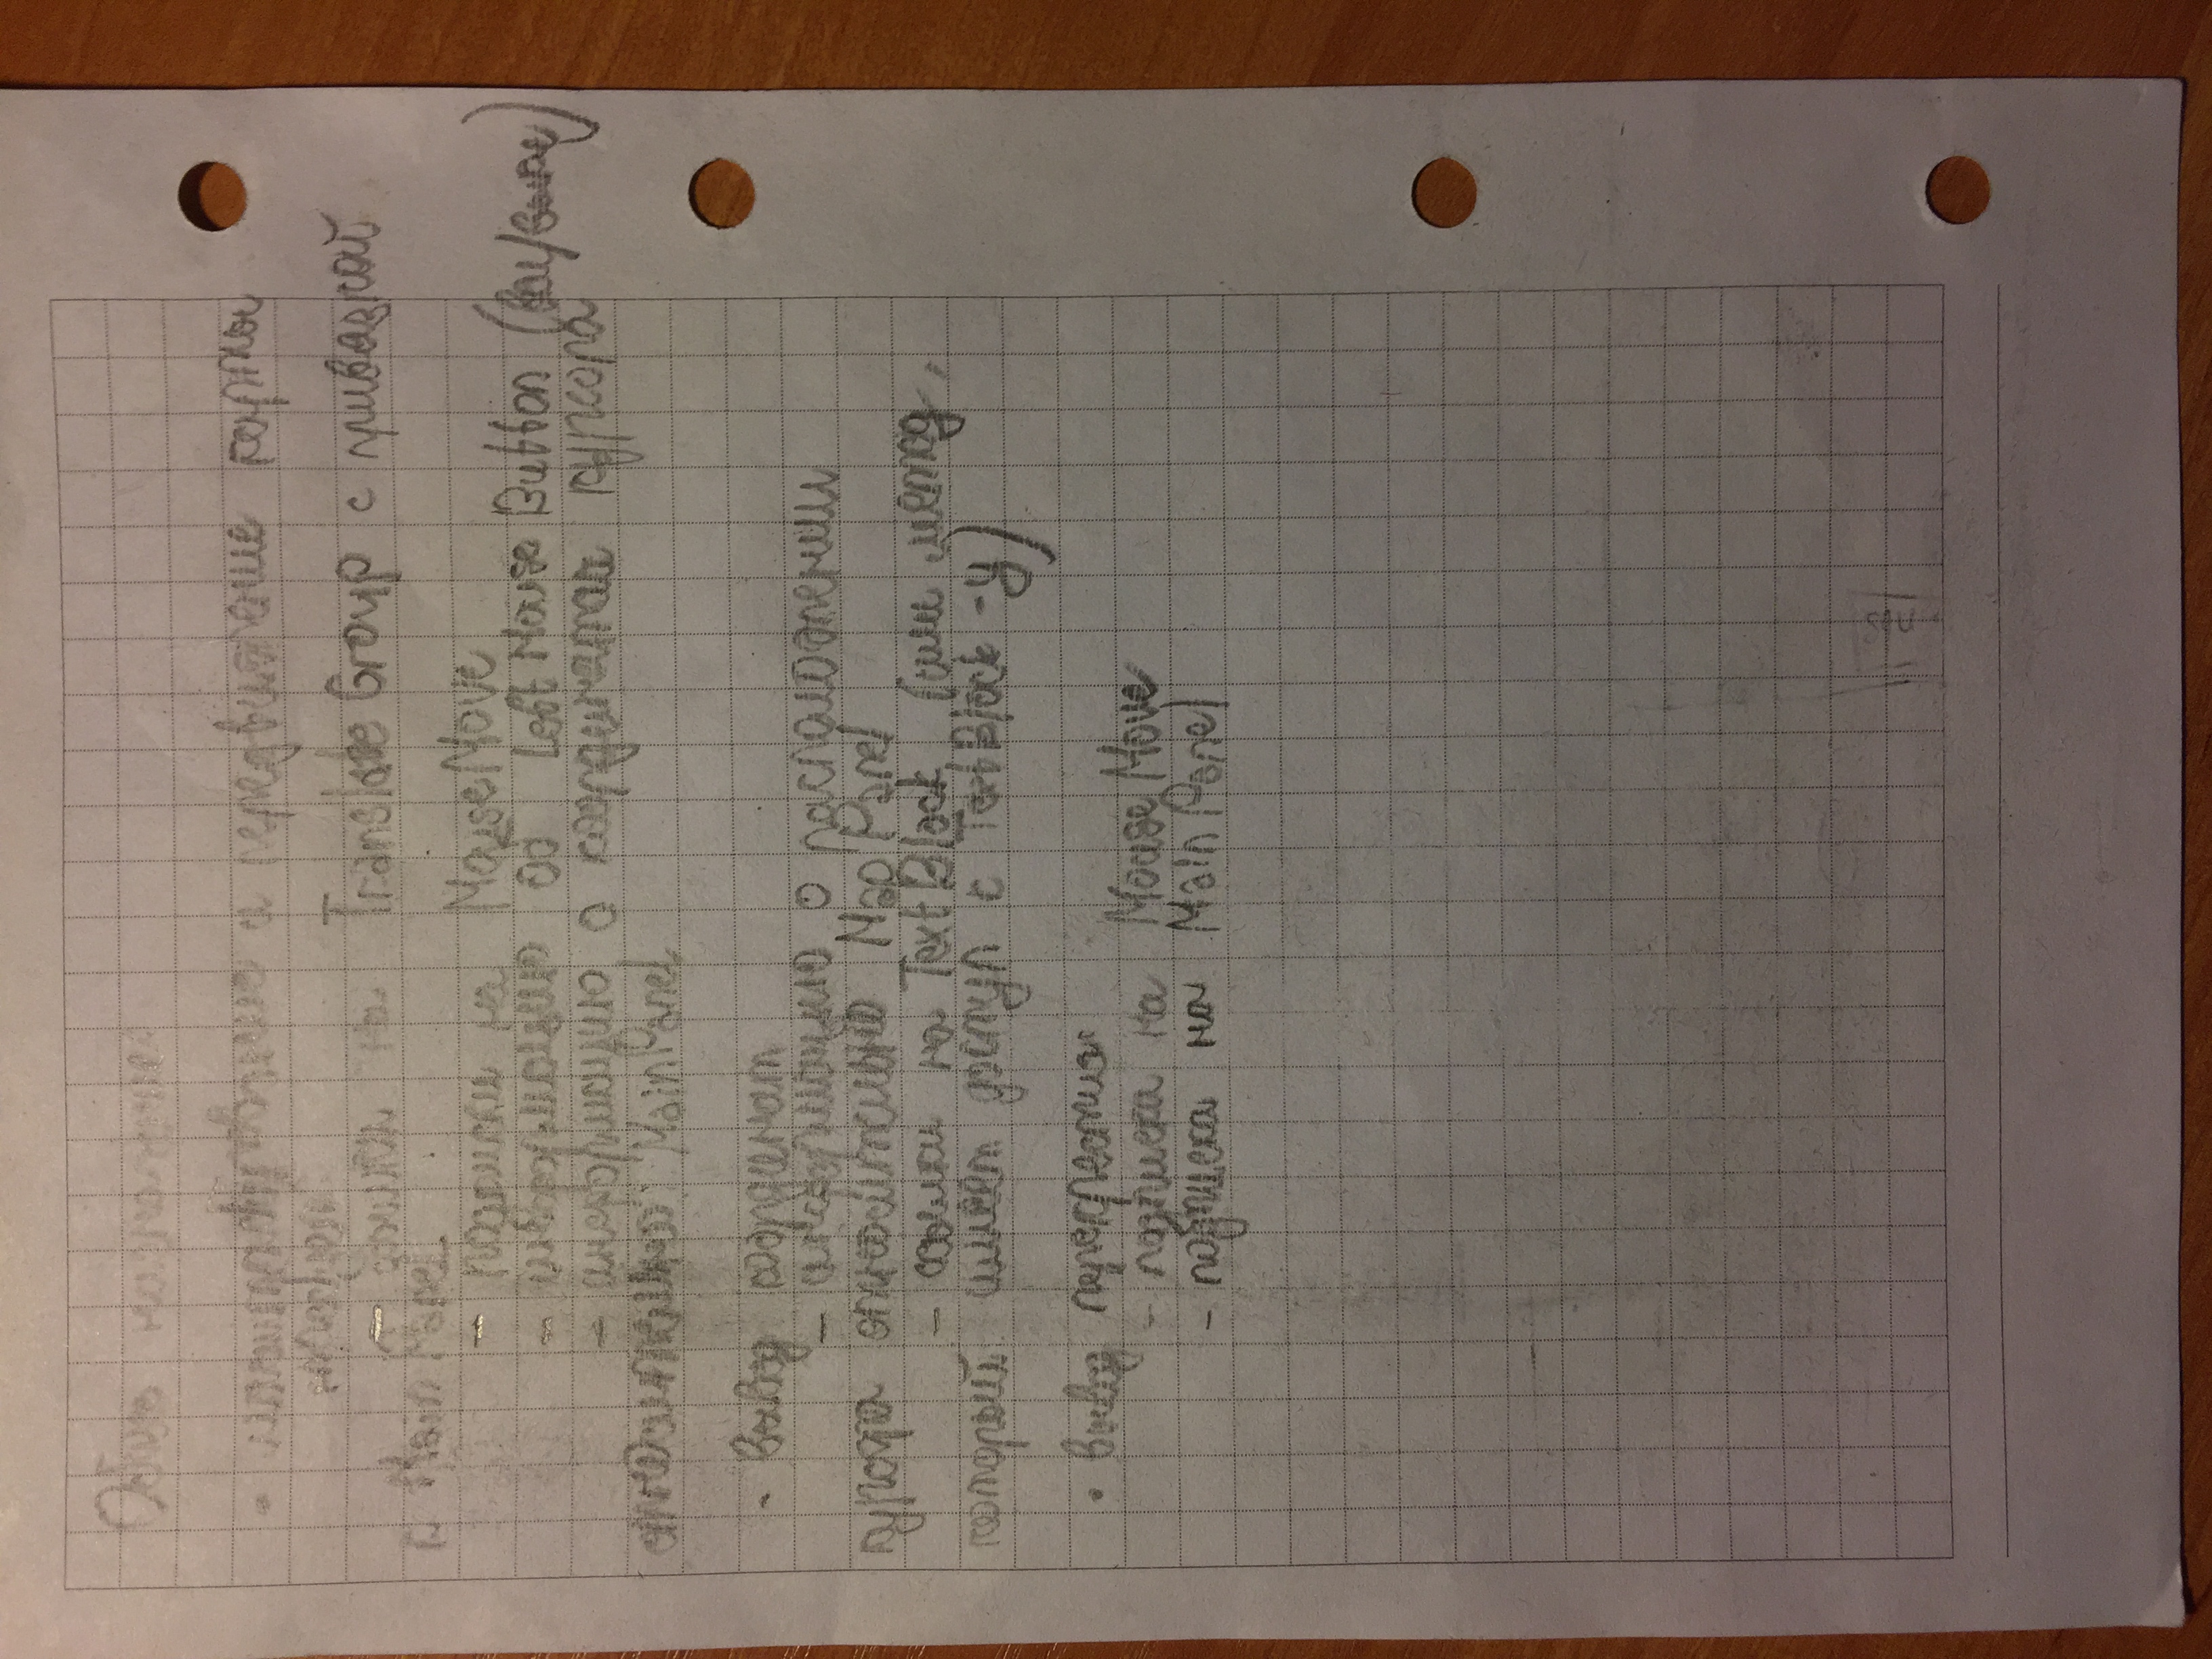 • масштабирование и передвижение карты
- ссылки на Translate Group с привязкой
к Main Panel
- подписки на MouseMove
- информацию об Left Mouse Button (вкл/выкл)
- информацию о координатах курсора
относительно MainPanel
- вывод координат
- информацию о расположении
курсора относительно Map Panel
- ссылки на TextBlock (или метод,
который имеет доступ с TextBlock -у)
• вывод перекрестия
- подписка на MouseMove
- подписка на MainPanel